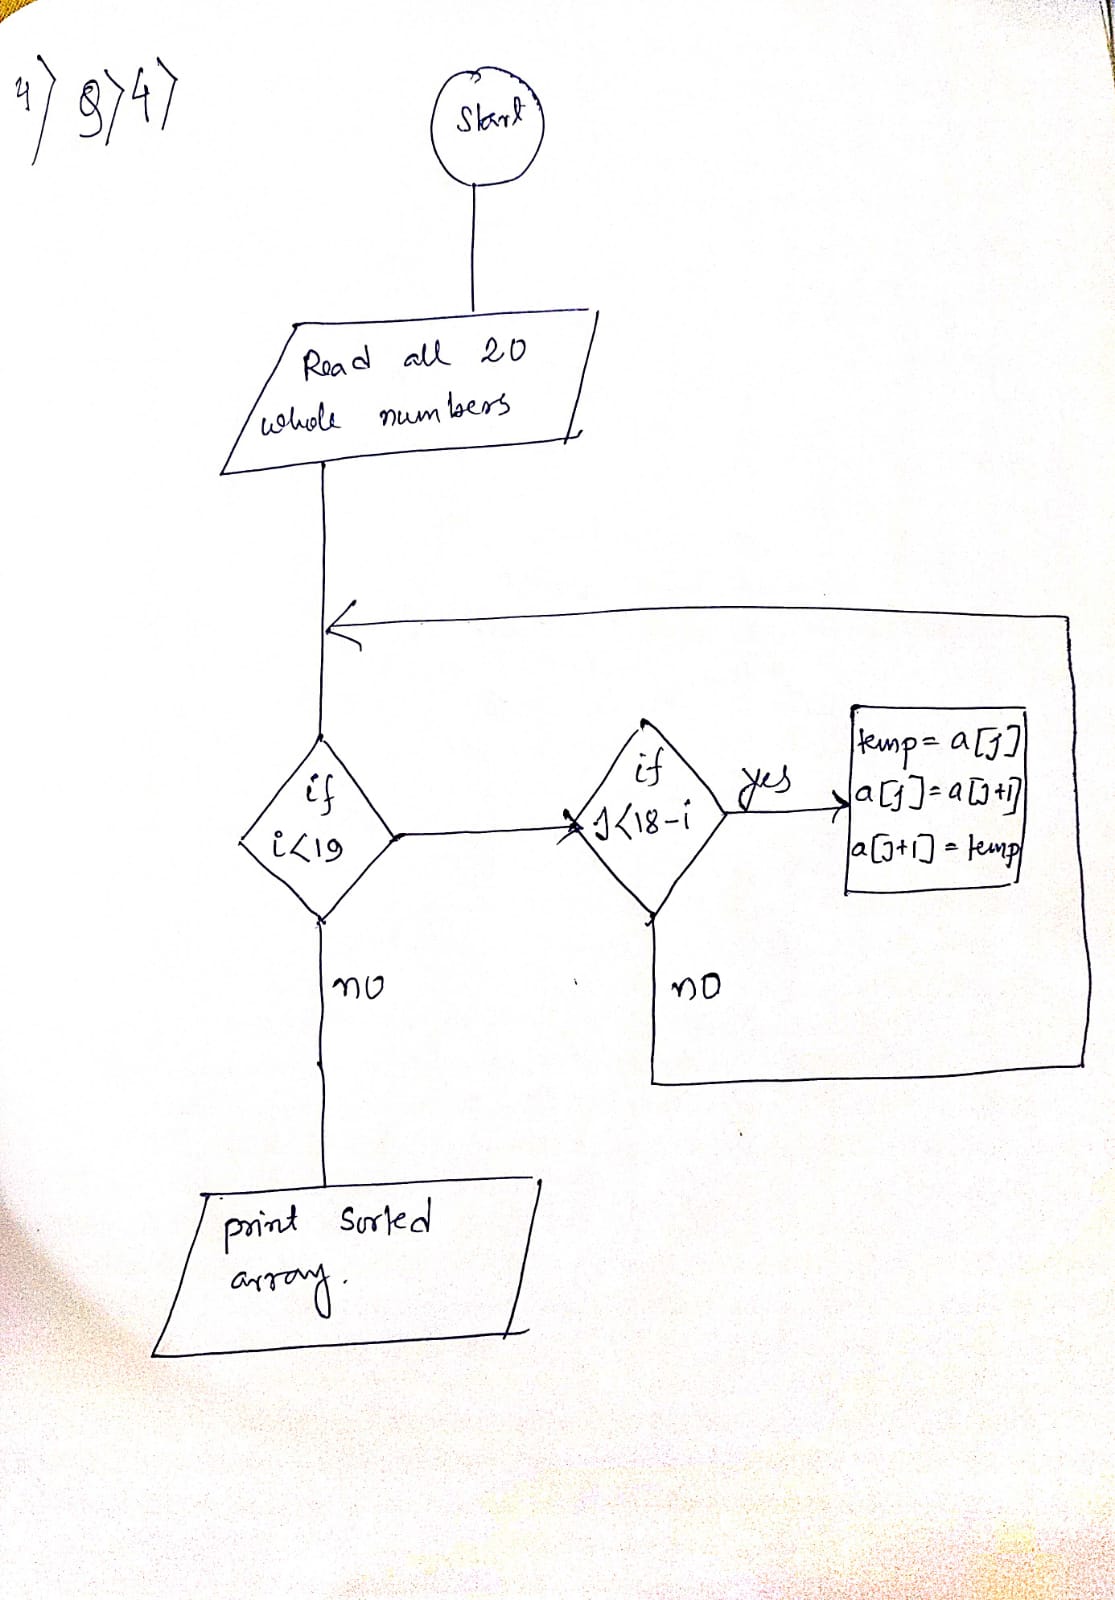 4) 9) 4)
Start
Read all 20
whole numbers
if
i<19
if
J<18-i
yes
temp = a[j]
a[j]=a[J+1]
a[J+1] = temp
no
no
print sorted
array.